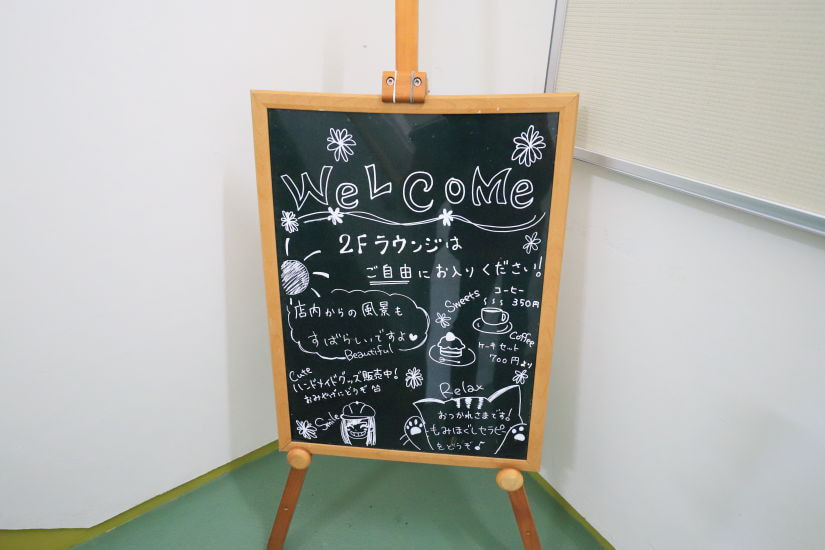 WeLCoMe
2Fラウンジは
ご自由にお入りください!
店内からの風景も
すばらしいですよ
Beautiful
Sweets
コーヒー
350円
Coffee
ケーキセット
700円より
Cute
ハンドメイドグッズ販売中!
おみやげにどうぞ
Smile
Relax
おつかれさまです!
もみほぐしセラピー
をどうぞ♪